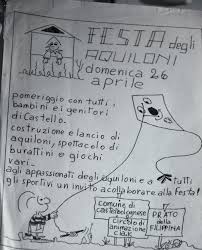 FESTA degli
AQUILONI
domenica 26
aprile
pomeriggio con tutti i
bambini e i genitori
di Castello.
costruzione e lancio di
aquiloni, spettacolo di
burattini e giochi
vari.
agli appassionati degli aquiloni e a tutti
gli sportivi un invito a collaborare alla festa!
comune di
castelbolognese
circolo di
animazione
PRATO
della
FILIPPINA